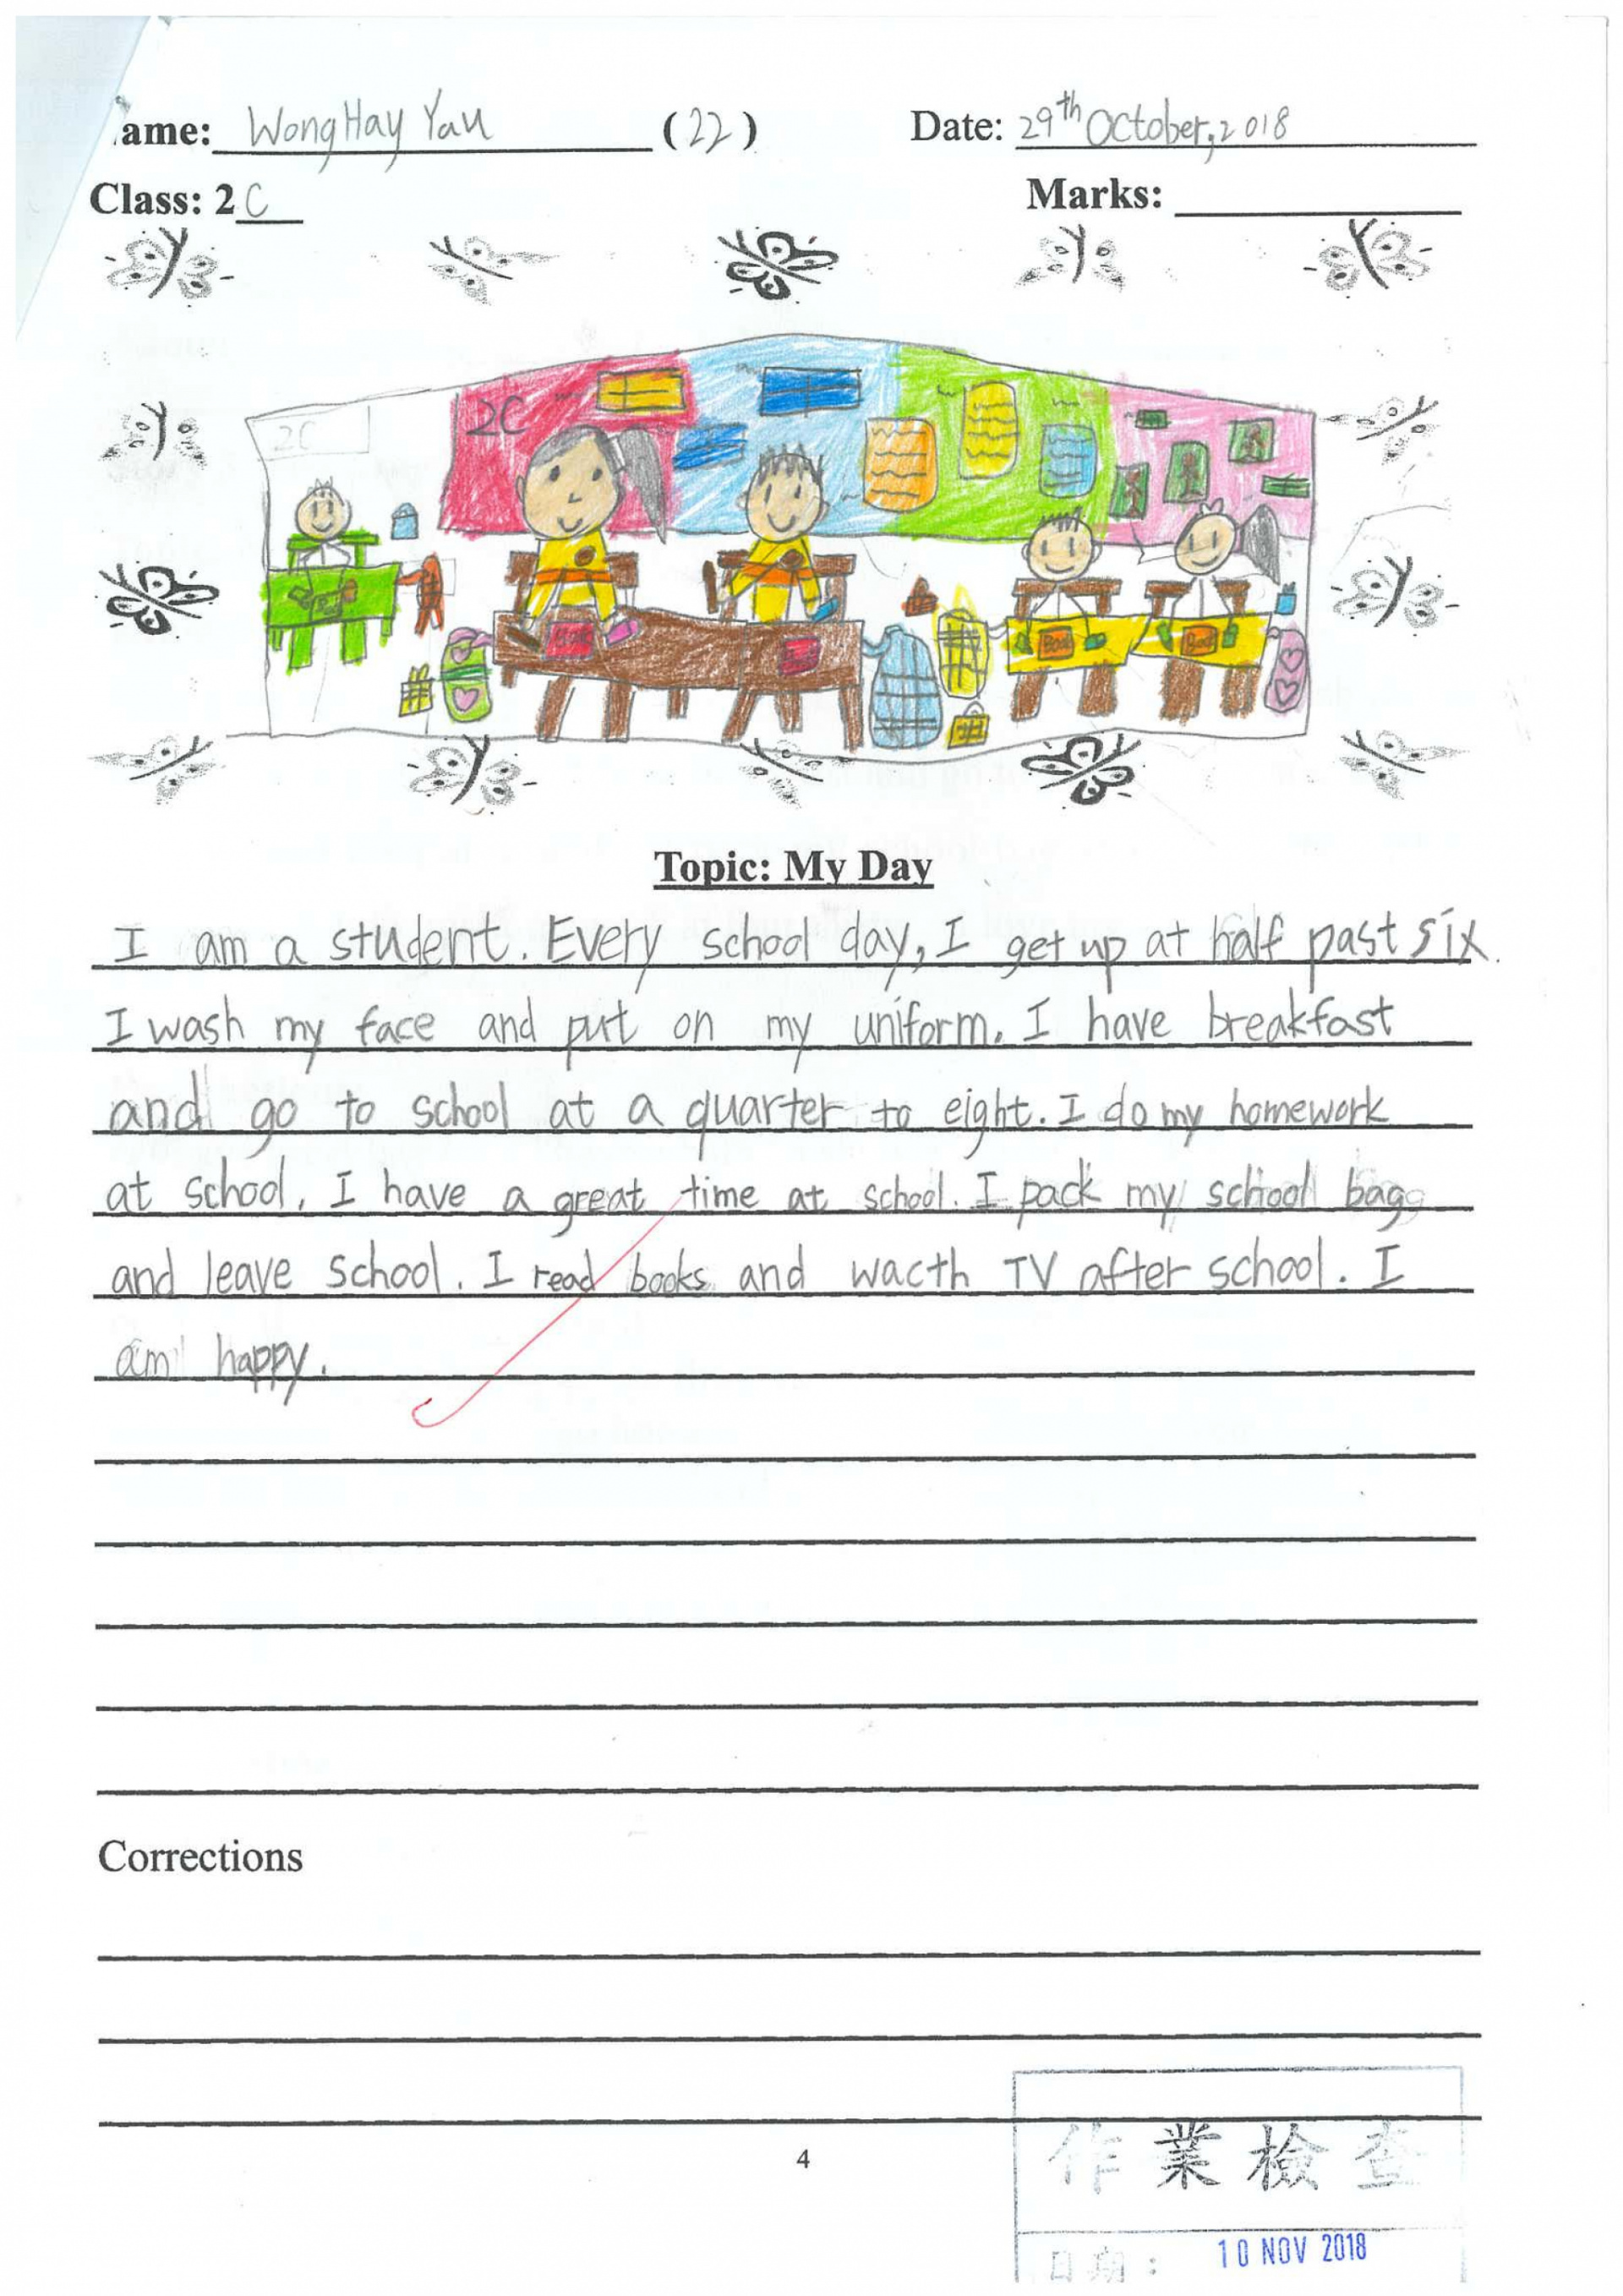 ame: Wong Hay Yau (22) Date: 29th October, 2018
Class: 2C Marks:
2C 2C
Book Book Book
Topic: My Day
I am a student. Every school day, I get up at half past six.
I wash my face and put on my uniform. I have breakfast
and go to school at a quarter to eight. I do my homework
at school. I have a great time at school. I pack my school bag
and leave school. I read books and wacth TV after school. I
am happy.
Corrections
4
作業檢查
日期：10 NOV 2018